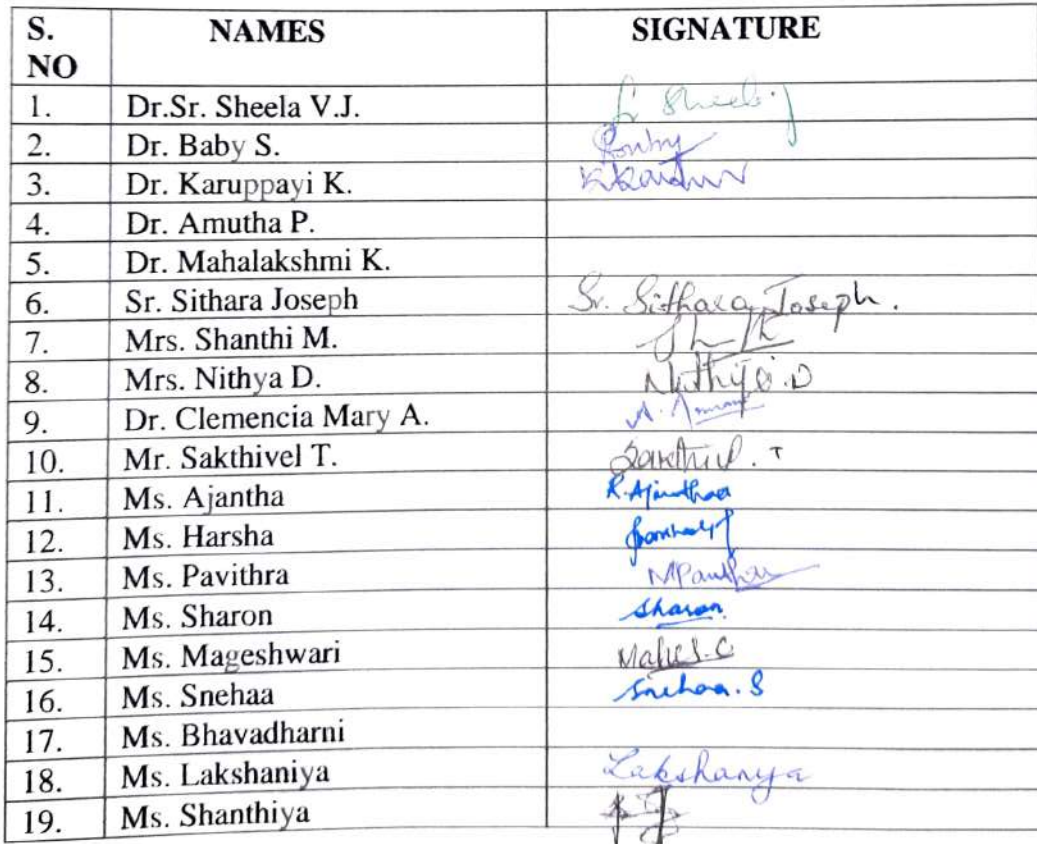 S. NO NAMES SIGNATURE
1. Dr.Sr. Sheela V.J. Sr Sheela.J
2. Dr. Baby S.
3. Dr. Karuppayi K.
4. Dr. Amutha P.
5. Dr. Mahalakshmi K.
6. Sr. Sithara Joseph Sr. Sithara Joseph.
7. Mrs. Shanthi M.
8. Mrs. Nithya D. Nithya.D
9. Dr. Clemencia Mary A.
10. Mr. Sakthivel T. Sakthivel. T
11. Ms. Ajantha R.Ajanthaa
12. Ms. Harsha
13. Ms. Pavithra
14. Ms. Sharon Sharon
15. Ms. Mageshwari
16. Ms. Snehaa Snehaa. S
17. Ms. Bhavadharni
18. Ms. Lakshaniya Lakshanya
19. Ms. Shanthiya